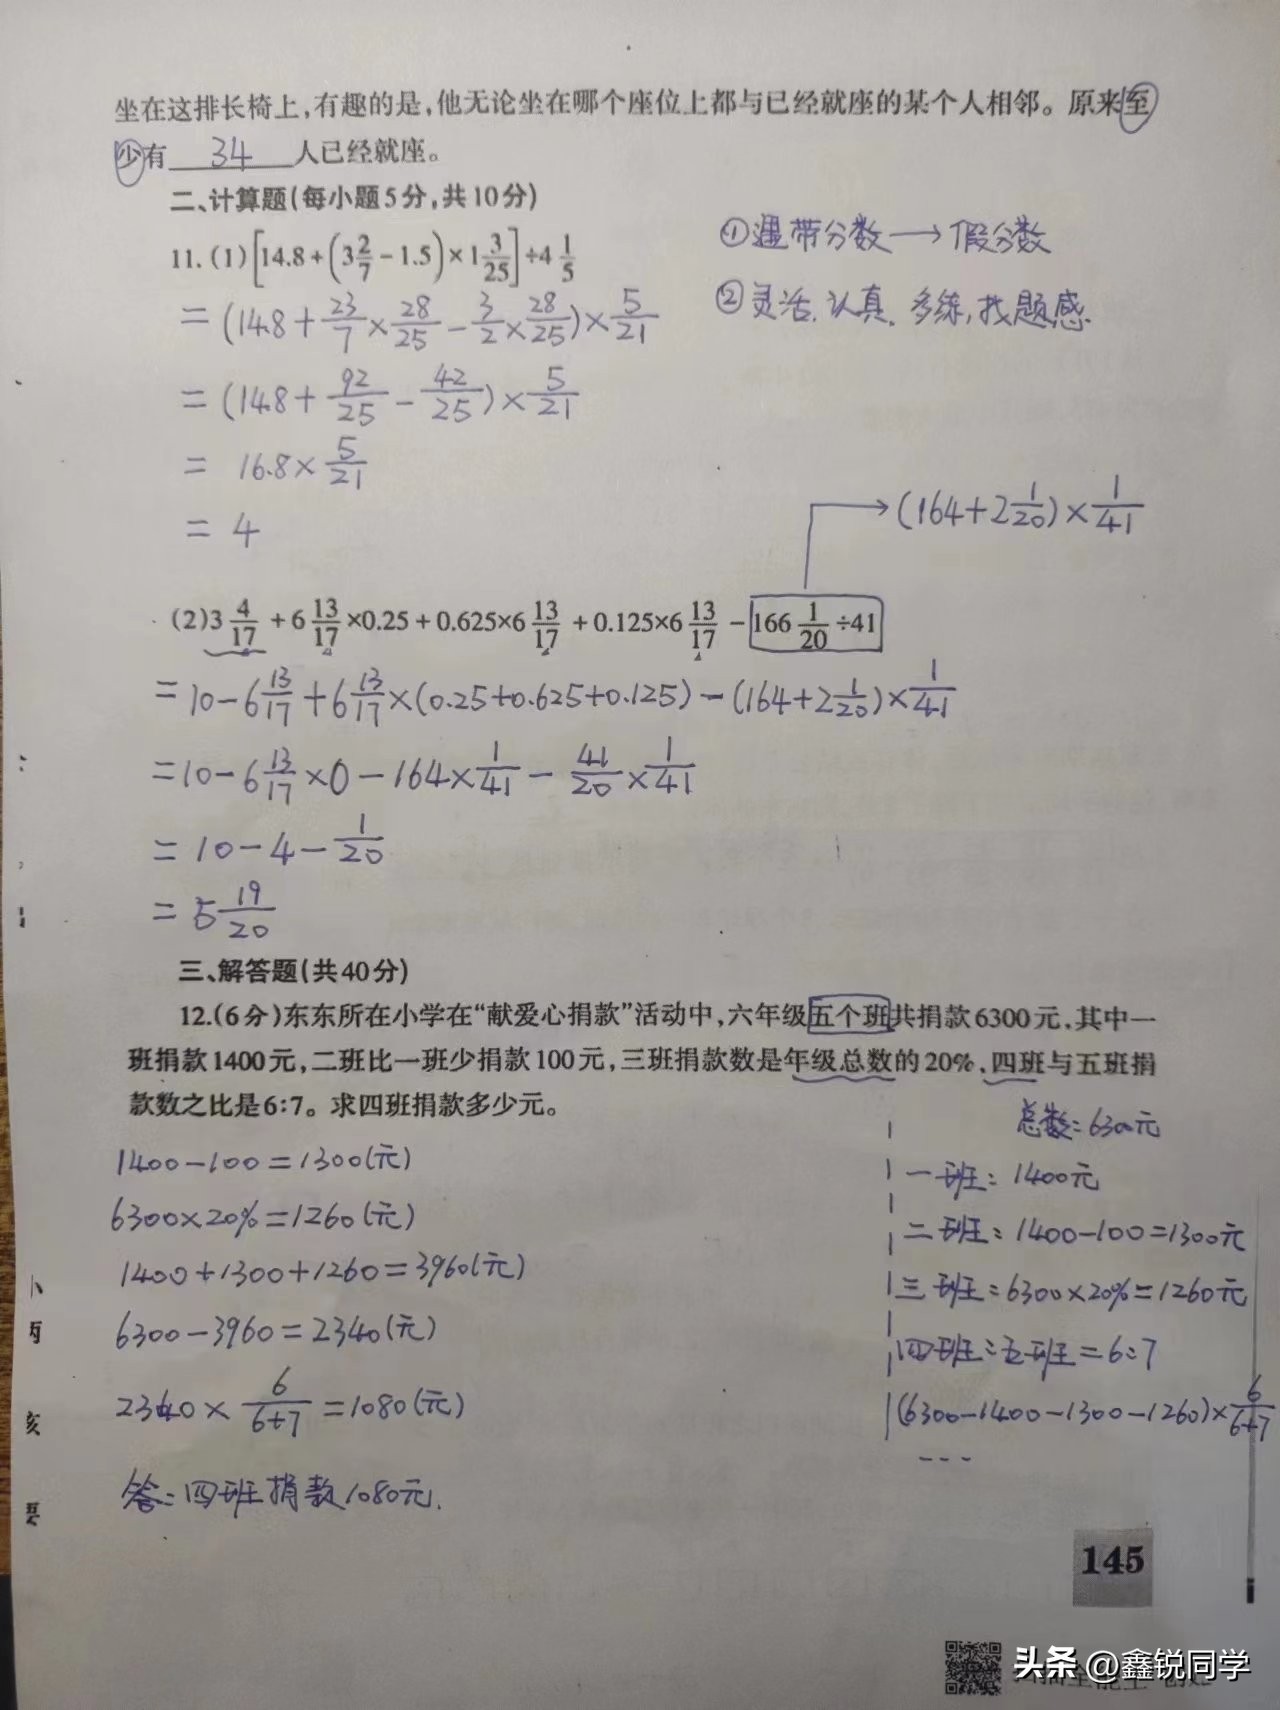 坐在这排长椅上,有趣的是,他无论坐在哪个座位上都与已经就座的某个人相邻。原来至
少有 34 人已经就座。
二、计算题(每小题5分,共10分)
①遇带分数→假分数
11.(1)[14.8+(3 2/7-1.5)×1 3/25]÷4 1/5
②灵活、认真、多练,找题感.
=(14.8+23/7×28/25-3/2×28/25)×5/21
=(14.8+92/25-42/25)×5/21
= 16.8×5/21
= 4
→(164+2 1/20)×1/41
(2)3 4/17+6 13/17×0.25+0.625×6 13/17+0.125×6 13/17-166 1/20÷41
=10-6 13/17+6 13/17×(0.25+0.625+0.125)-(164+2 1/20)×1/41
=10-6 13/17×0-164×1/41-41/20×1/41
=10-4-1/20
=5 19/20
三、解答题(共40分)
12.(6分)东东所在小学在“献爱心捐款”活动中,六年级五个班共捐款6300元,其中一
班捐款1400元,二班比一班少捐款100元,三班捐款数是年级总数的20%,四班与五班捐
款数之比是6:7。求四班捐款多少元。
总数:6300元
1400-100=1300(元)
一班:1400元
6300×20%=1260(元)
二班:1400-100=1300元
1400+1300+1260=3960(元)
三班:6300×20%=1260元
6300-3960=2340(元)
四班:五班=6:7
2340×6/(6+7)=1080(元)
(6300-1400-1300-1260)×6/(6+7)
---
答:四班捐款1080元.
小
丙
亥
145
头条@鑫锐同学